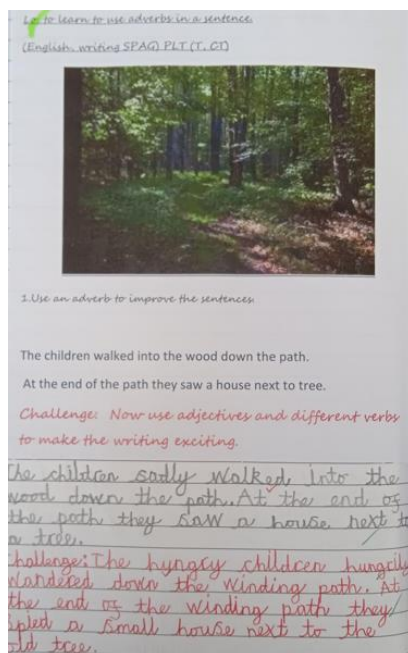 Lo to learn to use adverbs in a sentence.
(English, writing SPAG) PLT (T, CT)
1.Use an adverb to improve the sentences.
The children walked into the wood down the path.
At the end of the path they saw a house next to tree.
Challenge: Now use adjectives and different verbs
to make the writing exciting.
The children sadly walked into the
wood down the path. At the end of
the path they saw a house next to
a tree.
Challenge: The hyngry children hungrily
Wandered down the winding path. At
the end of the winding path they
a small house next to the
old tree.